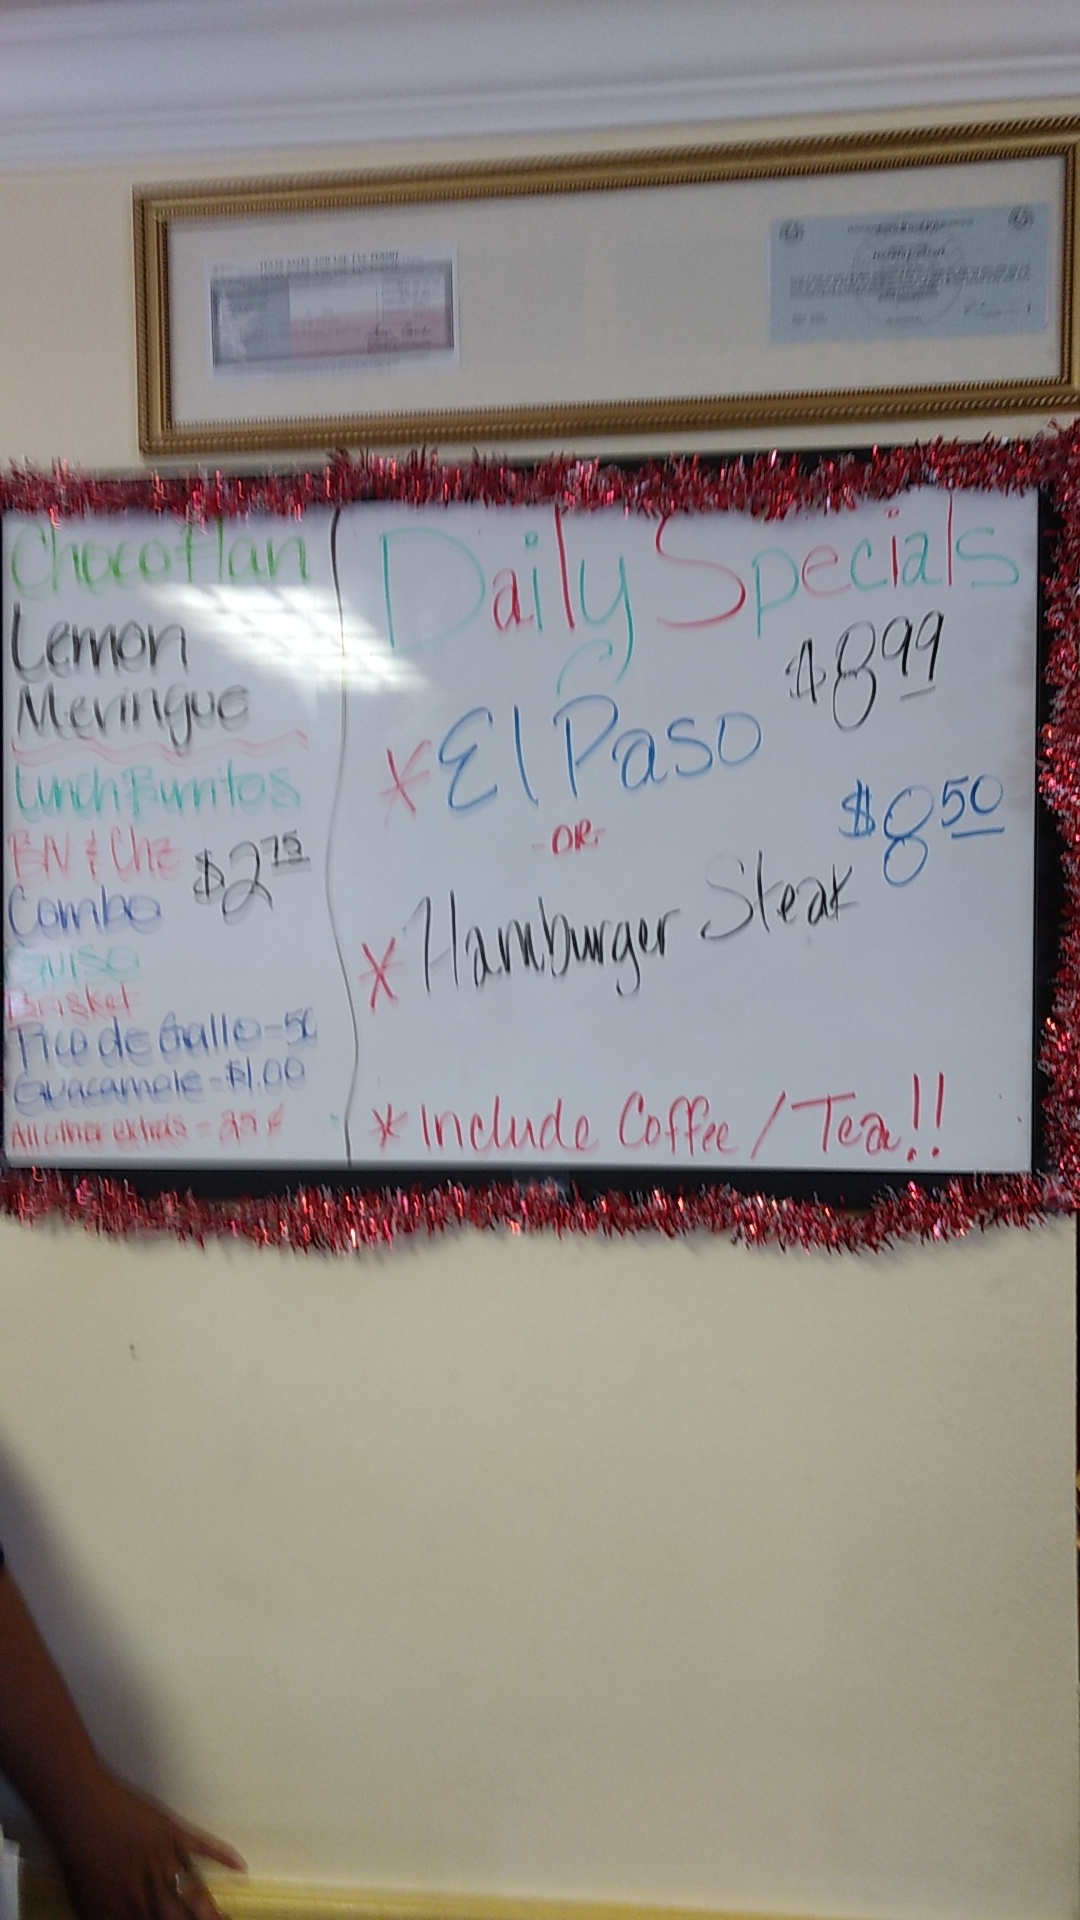 TEXAS SALES AND USE TAX PERMIT
Chocoflan
Lemon
Meringue
Lunch Burritos
BN & Chz
$2.75
Combo
Guiso
Brisket
Pico de Gallo - 50
Guacamole - $1.00
All other extras - 25¢
Daily Specials
$8.99
* El Paso
- OR -
$8.50
* Hamburger Steak
* Include Coffee / Tea!!